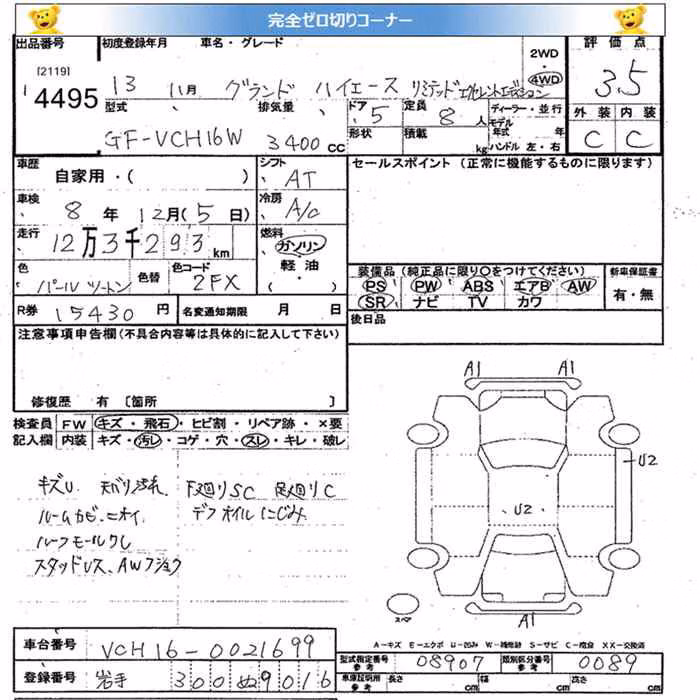 完全ゼロ切りコーナー
出品番号 初度登録年月 車名・グレード 2WD 4WD 評価点
[2119] 4495
13 11月 グランド ハイエース リミテッドエクセレントエディション 3.5
型式 排気量 ドア 5 定員 8人 ディーラー・並行 外装 内装
GF-VCH16W 3400cc 形状 積載 kg モデル年式 年 ハンドル 左・右 C C
車歴 自家用・( ) シフト AT セールスポイント (正常に機能するものに限ります)
車検 8年 12月(5日) 冷房 A/C
走行 12万3千293km 燃料 ガソリン
色 パールツートン 色替 色コード 2FX 軽油 ( )
装備品 (純正品に限り○をつけてください) 新車保証書
PS PW ABS エアB AW 有・無
SR ナビ TV カワ
R券 15430円 名変通知期限 月 日 後日品
注意事項申告欄(不具合内容等は具体的に記入して下さい)
修復歴 有 〔箇所 〕
検査員 FW キズ・飛石・ヒビ割・リペア跡・×要
記入欄 内装 キズ・汚レ・コゲ・穴・スレ・キレ・破レ
キズU 天バリ汚れ 下廻りSC 足廻りC
ルームカビ、ニオイ デフオイルにじみ
ルーフモールクし
スタッドレス、AWフショク
A1 A1
U2
U2
A1
スペア
A-キズ E-エクボ U-凹み W-補修跡 S-サビ C-腐食 XX-交換済
車台番号 VCH16-0021699 型式指定番号 参考 08907 類別区分番号 参考 0089
登録番号 岩手 300 ぬ 9016 車庫証明用 参考 長さ cm 幅 cm 高さ cm